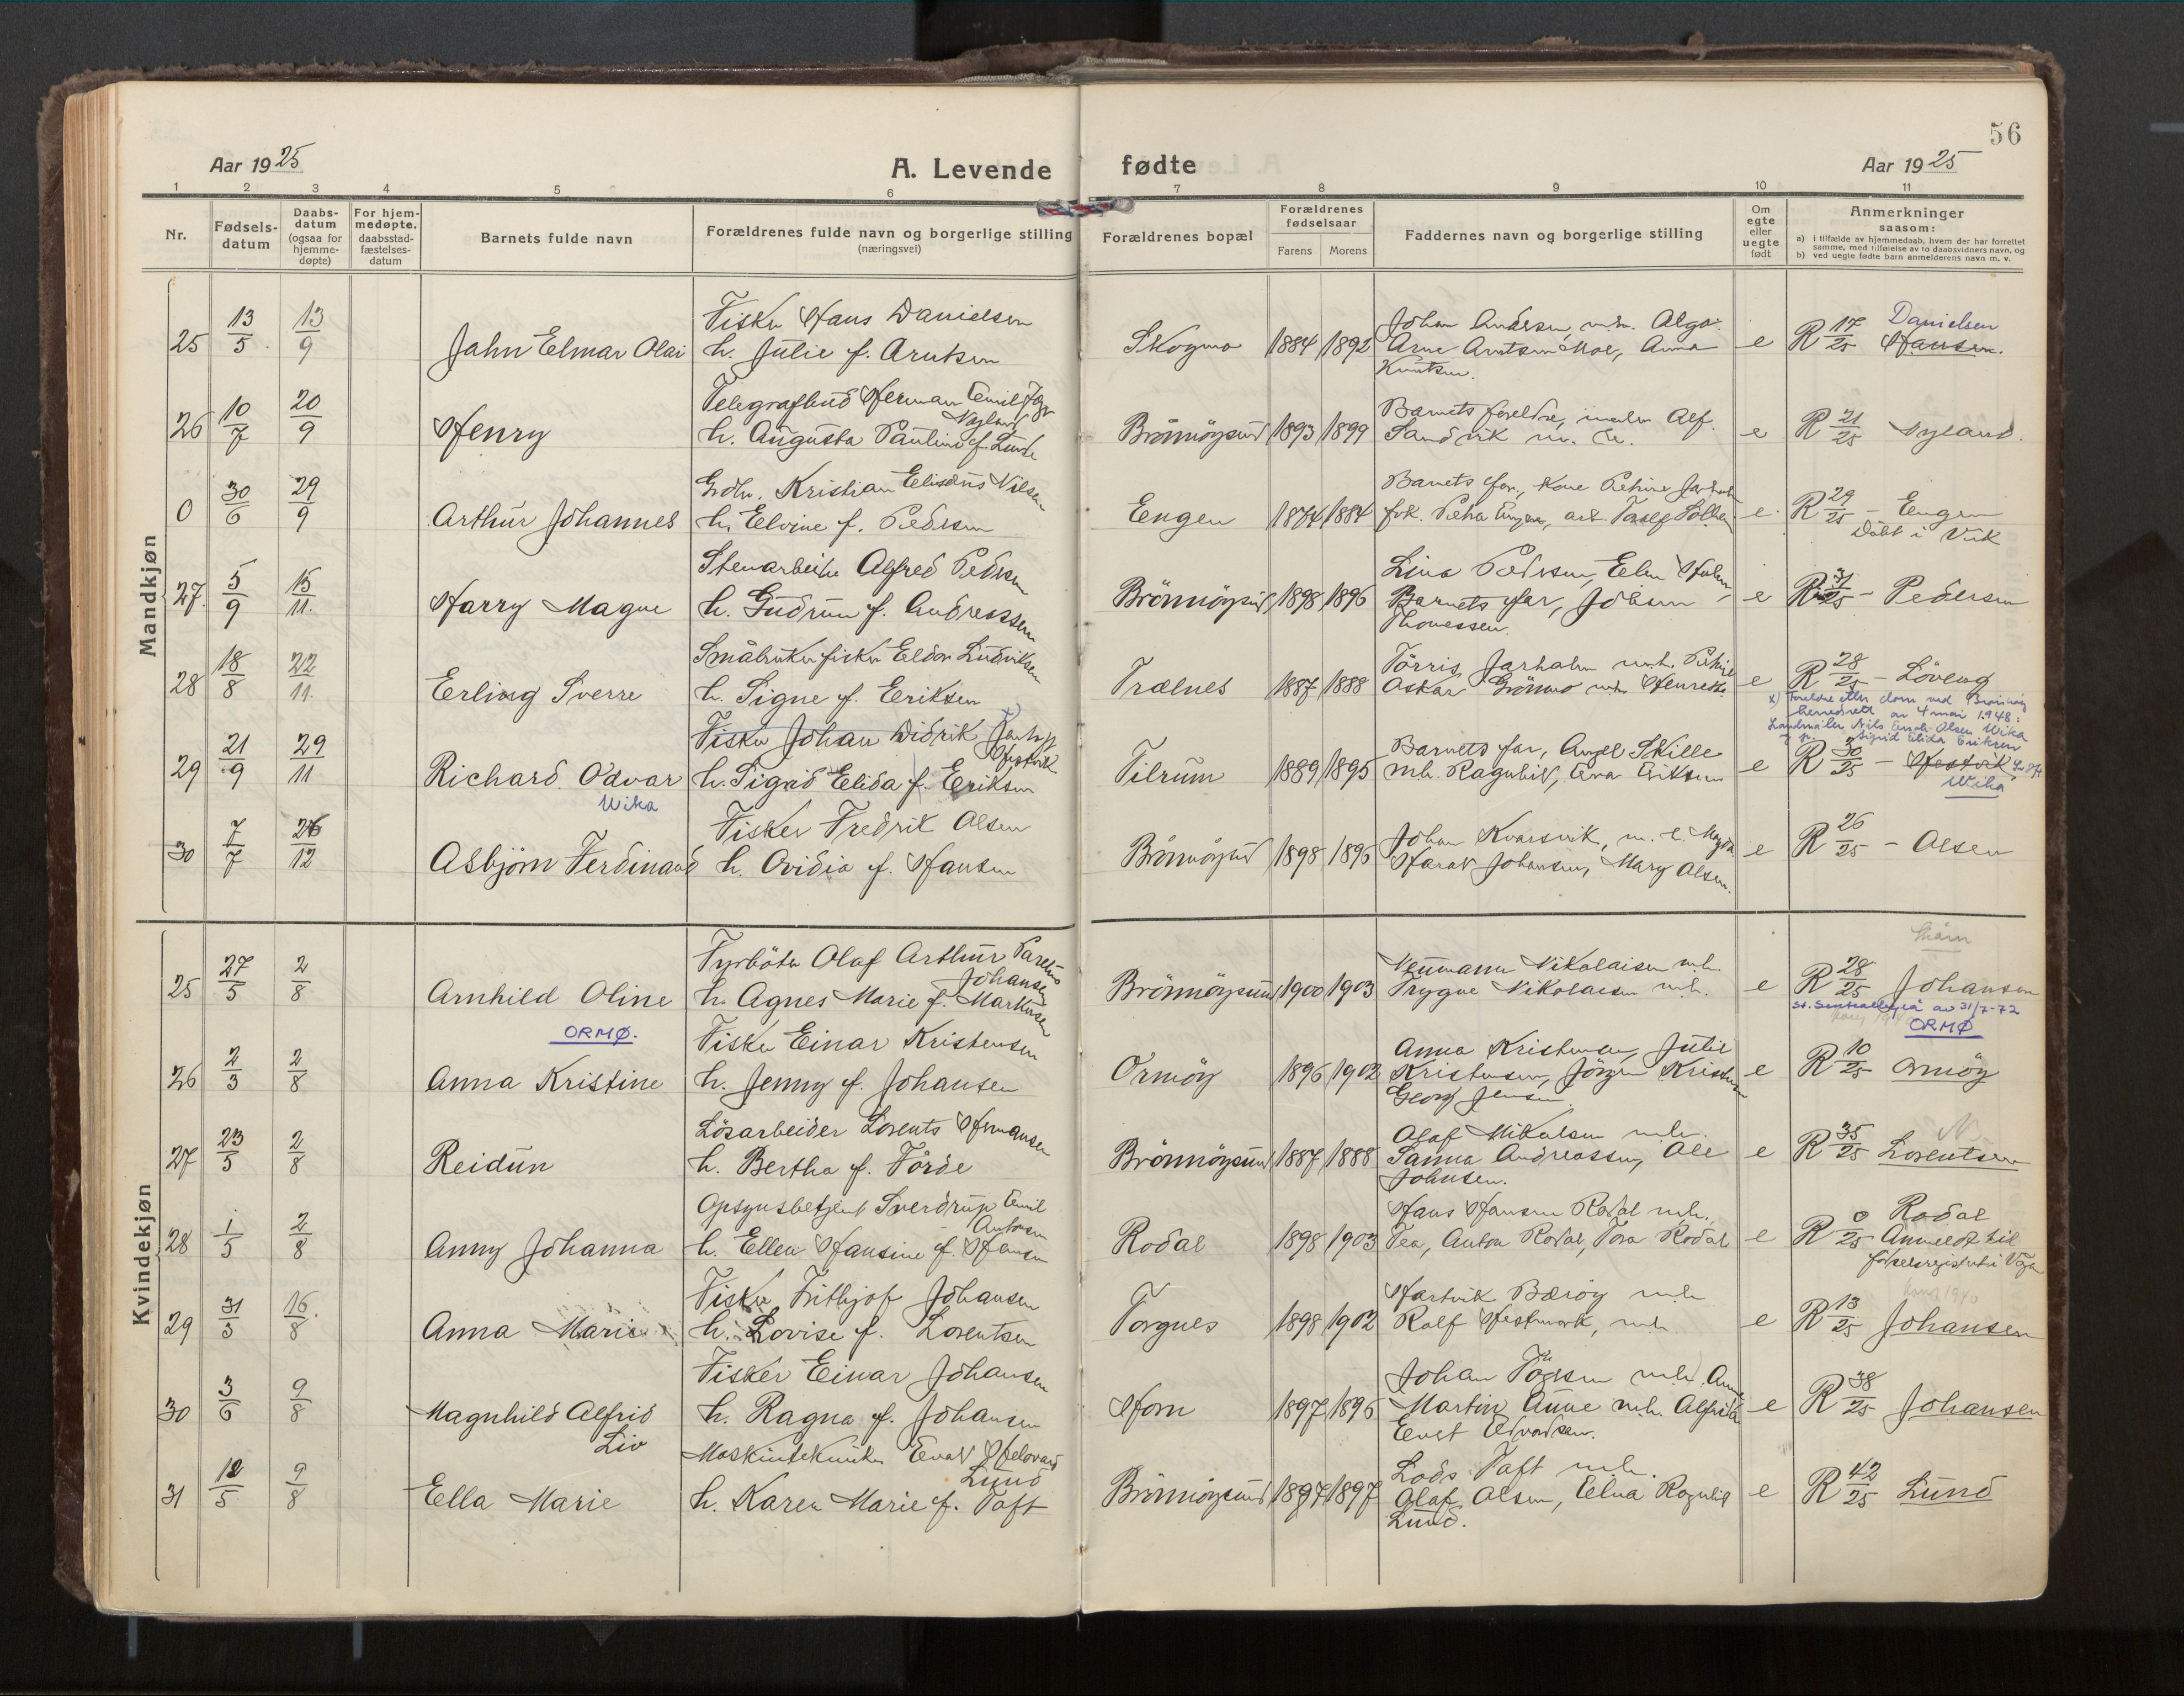 56
Aar 1925
A. Levende fødte
Aar 1925
1 2 3 4 5 6 7 8 9 10 11
Nr.
Fødsels-
datum
Daabs-
datum
(ogsaa for
hjemme-
døpte)
For hjem-
medøpte,
daabsstad-
fæstelses-
datum
Barnets fulde navn
Forældrenes fulde navn og borgerlige stilling
(næringsvei)
Forældrenes bopæl
Forældrenes
fødselsaar
Farens Morens
Faddernes navn og borgerlige stilling
Om
egte
eller
uegte
født
Anmerkninger
saasom:
a) i tilfælde av hjemmedaab, hvem der har forrettet
samme, med tilføielse av to daabsvidners navn, og
b) ved uegte fødte barn anmelderens navn m. v.
Mandkjøn
25 13/5 13/9 Jahn Elmar Olai
Fisker Hans Danielsen
h. Julie f. Arntsen
Skogmo 1884 1892
Johan Andersen, m.h. Alga.
Arne Arntsen Moe, Anna
Knutsen.
e R 17/25 Hansen.
Danielsen
26 10/7 20/9 Henry
Telegrafbud Herman Emil
Nyland
h. Augusta Pauline f. Lunde
Brönnöysund 1893 1899
Barnets foreldre, maler Alf.
Sandvik m. h.
e R 21/25 Nyland.
0 30/6 29/9 Arthur Johannes
Grdbr. Kristian Eliseus Nilsen
h. Elvine f. Pedersen
Engen 1874 1884
Barnets far, kone Petrine
frk. Petra Engen, arb.
e. R 29/25 - Engen
Döbt i Vik
27. 5/9 15/11. Harry Magne
Stenarbeider Alfred Pedersen
h. Gudrun f. Andreassen
Brönnöysund 1898 1896
Lina Pedersen, Elen
Barnets far, Johan
Thomessen.
e R 31/25 - Pedersen
28 18/8 22/11. Erling Sverre
Småbruker fisker Eldor Ludviksen
h. Signe f. Eriksen
Trælnes 1887 1888
Törris Jarholm m.h. Petrine
Oskar Grönmo m.h. Henrette
e R 28/25 - Löveng
x) Foreldre etter dom ved Brönnöy
herredsrett av 4 mai 1948:
Landmåler Nils Olsen Wika
og Sigrid Elida Eriksen
29 21/9 29/11 Richard Odvar
Wika
Fisker Johan Didrik
Hestvik
h. Sigrid Elida f. Eriksen
Tilrum 1889 1895
Barnets far, Angel Skille
m.h. Ragnhild, Eva Eriksen
e R 30/25 - Hestvik
Wika
30 7/7 26/12 Asbjörn Ferdinand
Fisker Fredrik Olsen
h. Ovidia f. Hansen
Brönnöysund 1898 1896
Johan Kvarsvik, m. h. Magda
Harald Johansen, Mary Olsen.
e R 26/25 - Olsen
Kvindekjøn
25 27/5 2/8 Arnhild Oline
Fyrböter Olaf Arthur Parelius
Johansen
h. Agnes Marie f. Markusen
Brönnöysund 1900 1903
Neumann Nikolaisen m.h.
Trygve Nikolaisen m.h.
e R 28/25 Johansen
ORMØ.
av 31/7-72
ORMØ
26 2/3 2/8 Anna Kristine
Fisker Einar Kristensen
h. Jenny f. Johansen
Ormöy 1896 1902
Anna Kristensen, Julie
Kristensen, Jörgen Kristensen
Georg Jensen.
e R 10/25 Ormöy
27 23/5 2/8 Reidun
Lösarbeider Lorents Hermansen
h. Bertha f. Förde
Brönnöysund 1887 1888
Olaf Mikalsen m.h.
Sanna Andreassen, Ole
Johnsen.
e R 35/25 Lorentsen
28 1/5 2/8 Anny Johanna
Opsynsbetjent Sverdrup Emil
Antonsen
h. Ellen Hansine f. Hansen
Rodal 1898 1903
Hans Hansen Rodal m.h.,
Tea, Anton Rodal, Tora Rodal
e R 0/25 Rodal
Anmeldt til
fødselsregistret i Vega
29 31/3 16/8. Anna Marie
Fisker Frithjof Johansen
h. Lovise f. Lorentsen
Torgnes 1898 1902
Hartvik Bæröy m.h.
Rolf Hestmark, m.h.
e R 13/25 Johansen
30 3/6 9/8 Magnhild Alfrid
Liv
Fisker Einar Johansen
h. Ragna f. Johansen
Horn 1897 1896
Johan m.h. Anna
Martin Aune m.h. Alfrida
Enet Edvardsen.
e R 38/25 Johansen
31 12/5 9/8 Ella Marie
Maskintekniker Enok
Lund
h. Karen Marie f. Toft
Brönnöysund 1897 1897
Lods Toft m.h.
Olaf Olsen, Elna Ragnhild
Lund.
e R 42/25 Lund